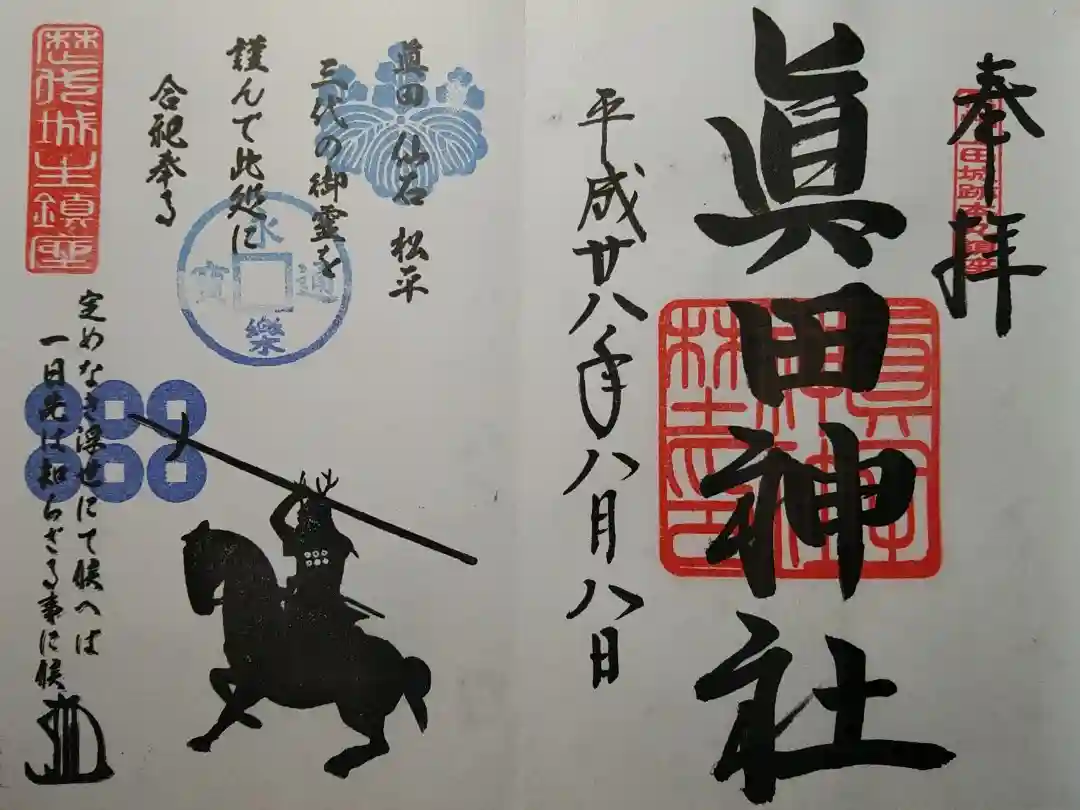 奉拝
眞田神社
平成廿八年八月八日
真田 仙石 松平
三代の御霊を
謹んで此処に
合祀奉る
永樂通寳
歴代城主鎮座
定めなき浮世にて候へば
一日先は知らざる事に候